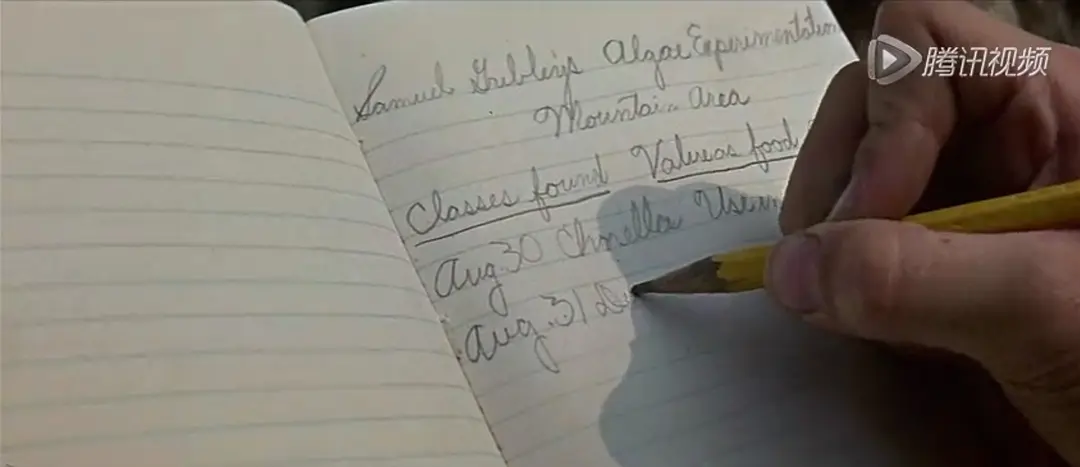 腾讯视频
Samuel Gribling's Algae Experimentation
Mountain Area
Classes found Value as food
Aug 30
Aug. 31